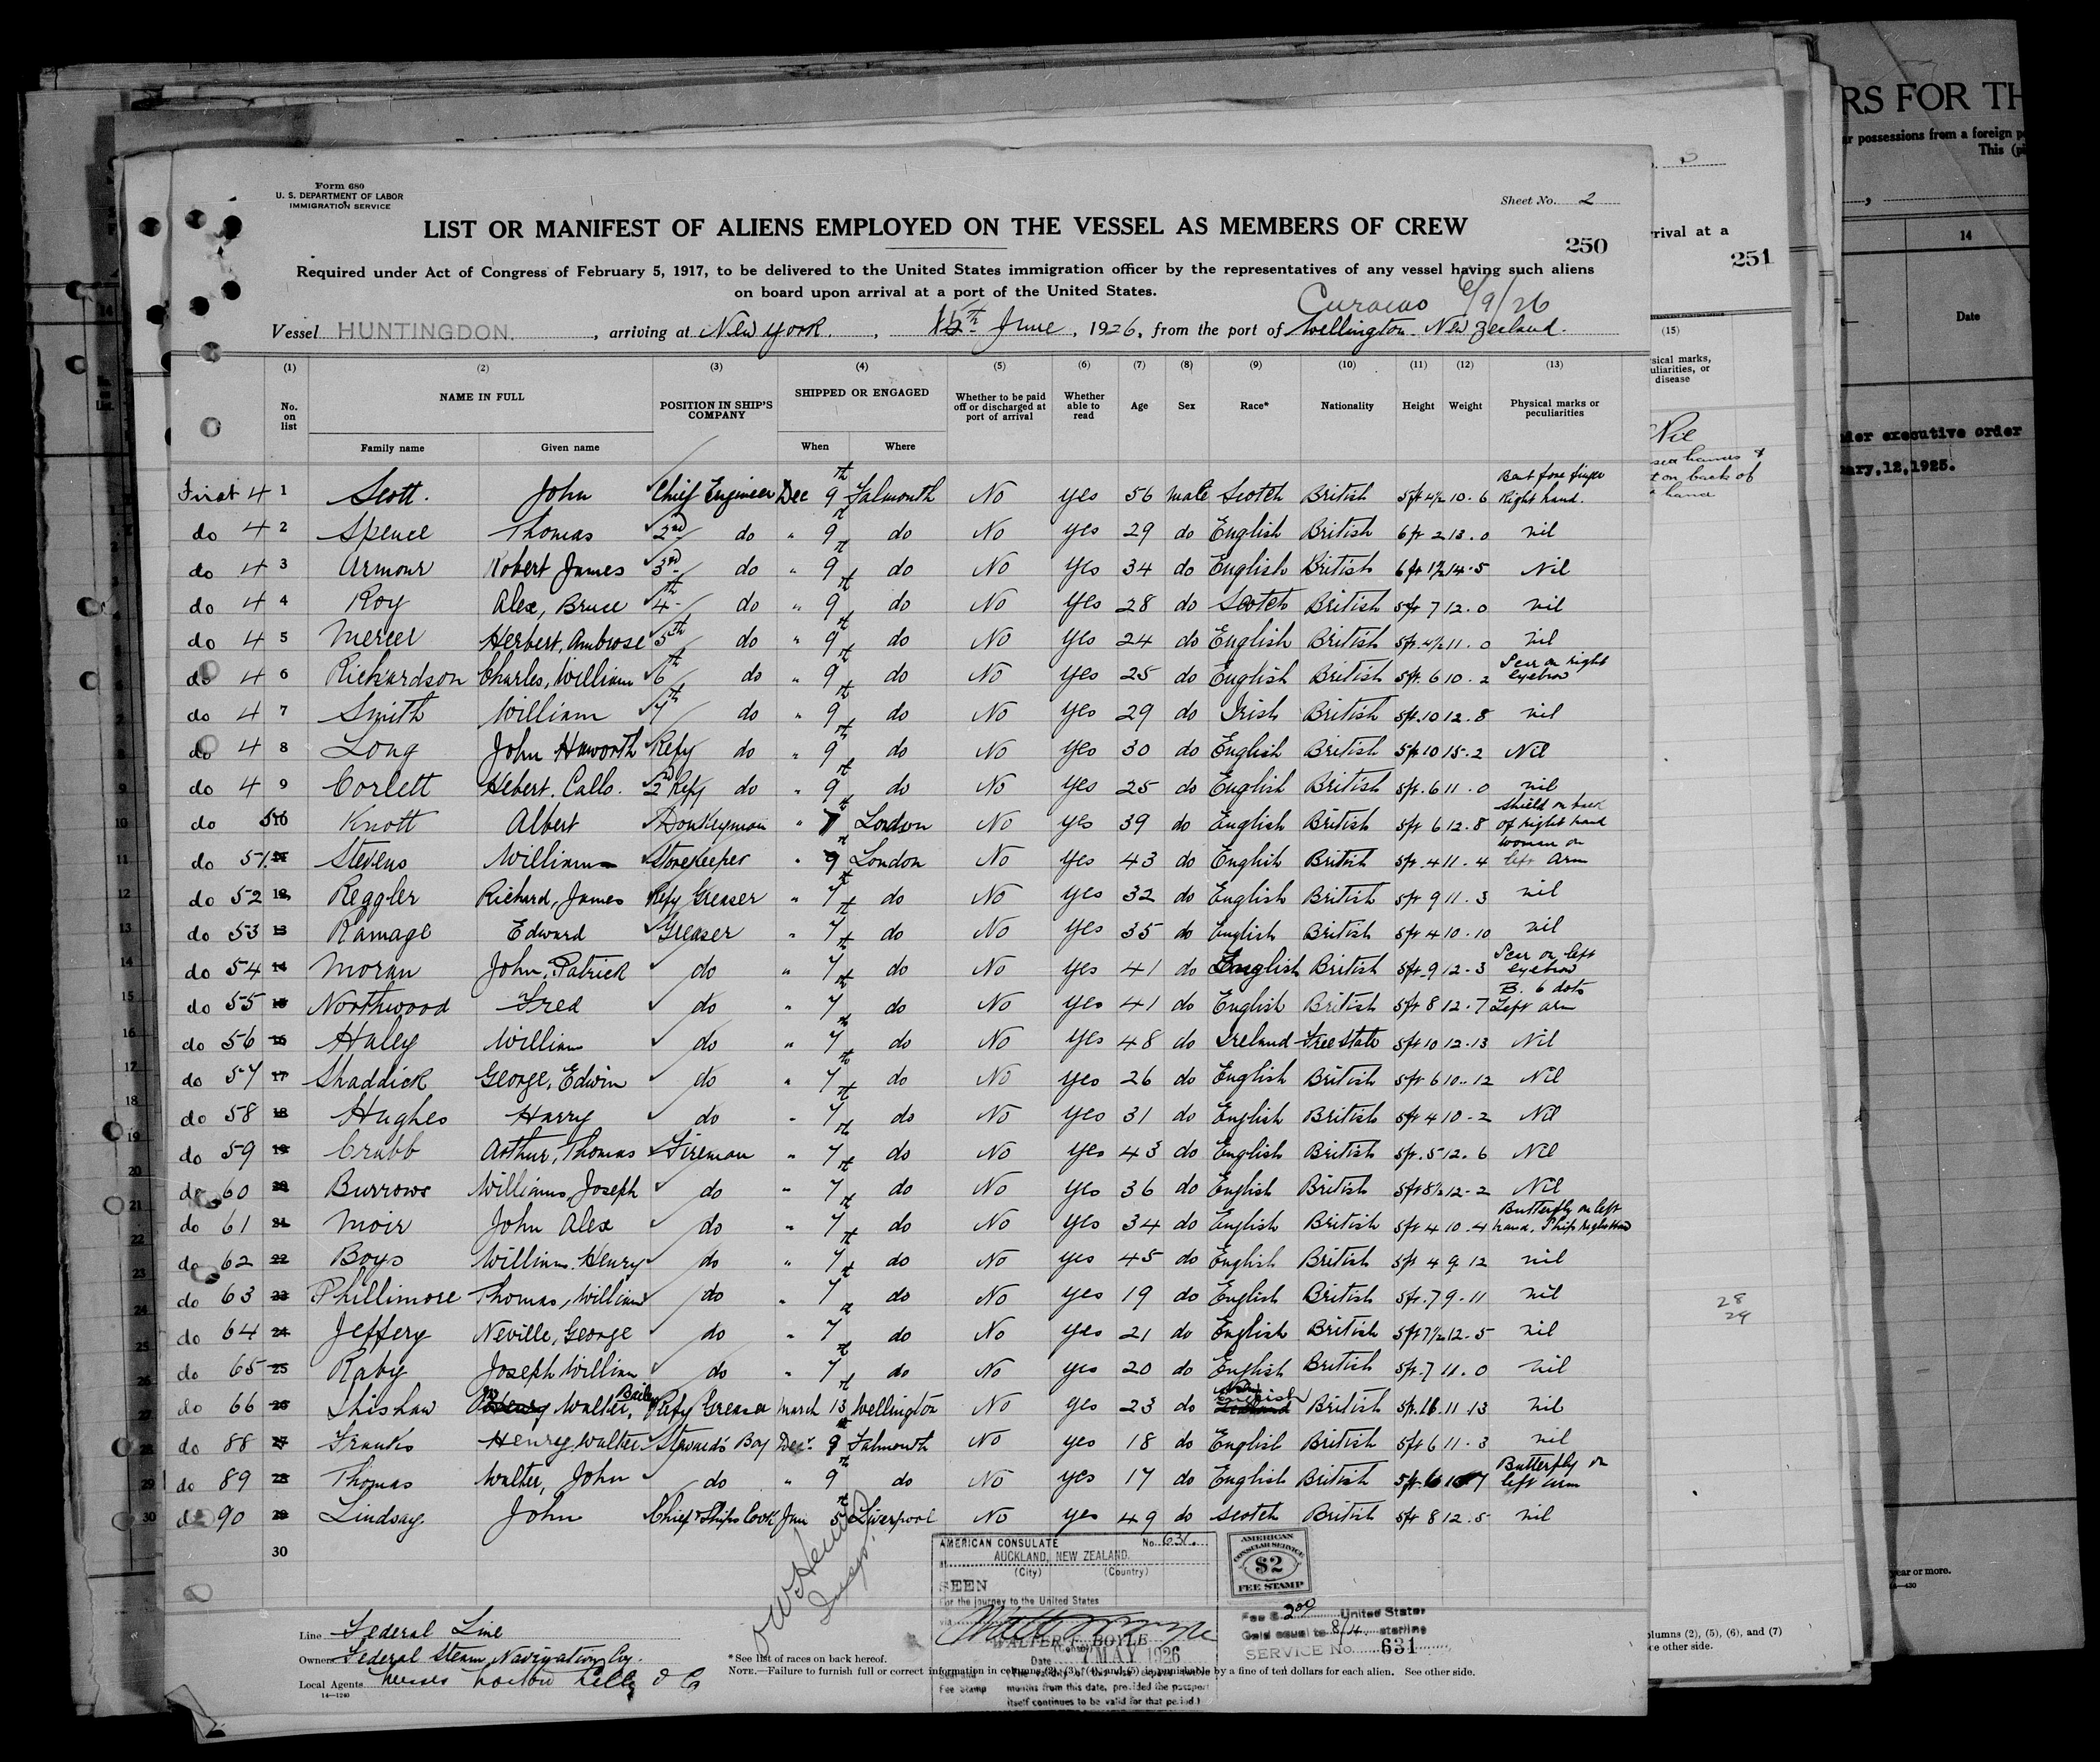 Form 680
U. S. DEPARTMENT OF LABOR
IMMIGRATION SERVICE
Sheet No. 2
LIST OR MANIFEST OF ALIENS EMPLOYED ON THE VESSEL AS MEMBERS OF CREW
250
Required under Act of Congress of February 5, 1917, to be delivered to the United States immigration officer by the representatives of any vessel having such aliens
on board upon arrival at a port of the United States.
Curacao 6/9/26
Vessel HUNTINGDON. , arriving at New York. , 15th June, 1926, from the port of Wellington New Zealand.
(1) (2) (3) (4) (5) (6) (7) (8) (9) (10) (11) (12) (13)
No. on list NAME IN FULL POSITION IN SHIP'S COMPANY SHIPPED OR ENGAGED Whether to be paid off or discharged at port of arrival Whether able to read Age Sex Race* Nationality Height Weight Physical marks or peculiarities
Family name Given name When Where
First 4 1 Scott. John Chief Engineer Dec 9th Falmouth No yes 56 male Scotch British 5ft 4½ 10.6 Bent fore finger Right hand.
do 4 2 Spence Thomas 2nd do " 9th do No yes 29 do English British 6ft 2 13.0 nil
do 4 3 Armour Robert James 3rd do " 9th do No Yes 34 do English British 6ft 1½ 14.5 Nil
do 4 4 Roy Alex, Bruce 4th do " 9th do No Yes 28 do Scotch British 5ft 7 12.0 nil
do 4 5 Mercer Herbert, Ambrose 5th do " 9th do No Yes 24 do English British 5ft. 4½ 11.0 nil
do 4 6 Richardson Charles, William 6th do " 9th do No Yes 25 do English British 5ft. 6 10.2 Scar on right Eyebrow
do 4 7 Smith William 7th do " 9th do No Yes 29 do Irish British 5ft. 10 12.8 nil
do 4 8 Long John Haworth Refg do " 9th do No Yes 30 do English British 5ft 10 15.2 Nil
do 4 9 Corlett Hebert. Callo. 2nd Refg do " 9th do No Yes 25 do English British 5ft. 6 11.0 nil
do 50 10 Knott Albert Donkeyman " 7th London No yes 39 do English British 5ft 6 12.8 Shield on back of right hand
do 51 11 Stevens William Storekeeper " 9th London No Yes 43 do English British 5ft. 4 11.4 woman on left arm
do 52 12 Reggler Richard, James Refg Greaser " 7th do No Yes 32 do English British 5ft 9 11.3 nil
do 53 13 Ramage Edward Greaser " 7th do No Yes 35 do English British 5ft 4 10.10 nil
do 54 14 Moran John, Patrick do " 7th do No Yes 41 do English British 5ft. 9 12.3 Scar on left Eyebrow
do 55 15 Northwood Fred do " 7th do No Yes 41 do English British 5ft 8 12.7 B. 6 dots Left arm
do 56 16 Haley William do " 7th do No Yes 48 do Ireland Free State 5ft 10 12.13 Nil
do 57 17 Shaddick George, Edwin do " 7th do No Yes 26 do English British 5ft 6 10.12 Nil
do 58 18 Hughes Harry do " 7th do No yes 31 do English British 5ft 4 10.2 Nil
do 59 19 Crabb Arthur, Thomas Fireman " 7th do No Yes 43 do English British 5ft. 5 12.6 Nil
do 60 20 Burrows William, Joseph do " 7th do No Yes 36 do English British 5ft 8½ 12.2 Nil
do 61 21 Moir John Alex do " 7th do No Yes 34 do English British 5ft 4 10.4 Butterfly on left hand, Ship right hand
do 62 22 Boys William. Henry do " 7th do No yes 45 do English British 5ft 4 9 12 nil
do 63 23 Phillimore Thomas, William do " 7th do No yes 19 do English British 5ft. 7 9.11 nil
do 64 24 Jeffery Neville, George do " 7th do No yes 21 do English British 5ft 7½ 12.5 nil
do 65 25 Raby Joseph William do " 7th do No yes 20 do English British 5ft. 7 11.0 nil
do 66 26 Shishaw Henry Walter, Bailey Refg Greaser March 13th Wellington No yes 23 do English British 11.13 nil
do 88 27 Franks Henry Walter Steward's Boy Decr. 9 Falmouth No yes 18 do English British 5ft 6 11.3 nil
do 89 28 Thomas Walter, John do " 9th do No yes 17 do English British 5ft. 6 10 7 Butterfly on left arm
do 90 29 Lindsay John Chief Ships Cook Jan 5th Liverpool No yes 49 do Scotch British 5ft 8 12.5 nil
30
AMERICAN CONSULATE No. 631.
at AUCKLAND, NEW ZEALAND.
(City) (Country)
SEEN
For the journey to the United States
via
WALTER F. BOYLE
(Consul)
Date 7 MAY 1926
months from this date, provided the passport
itself continues to be valid for that period.)
Fee Stamp
AMERICAN
CONSULAR SERVICE
$2
FEE STAMP
Fee $ 2.00 United States
Gold equal to 8/4. sterling
SERVICE No. 631
Line Federal Line
Owners Federal Steam Navigation Co.
Local Agents Messrs Norton Lilly & Co
14—1240
*See list of races on back hereof.
NOTE.—Failure to furnish full or correct information in columns (2), (3), (4), and (5) is punishable by a fine of ten dollars for each alien. See other side.
rival at a
251
(15)
sical marks,
uliarities, or
disease
Nil
t on back of
hand
28
29
olumns (2), (5), (6), and (7)
ce other side.
RS FOR TH
ar possessions from a foreign p
This (pi
14
Date
der executive order
ary,12,1925.
year or more.